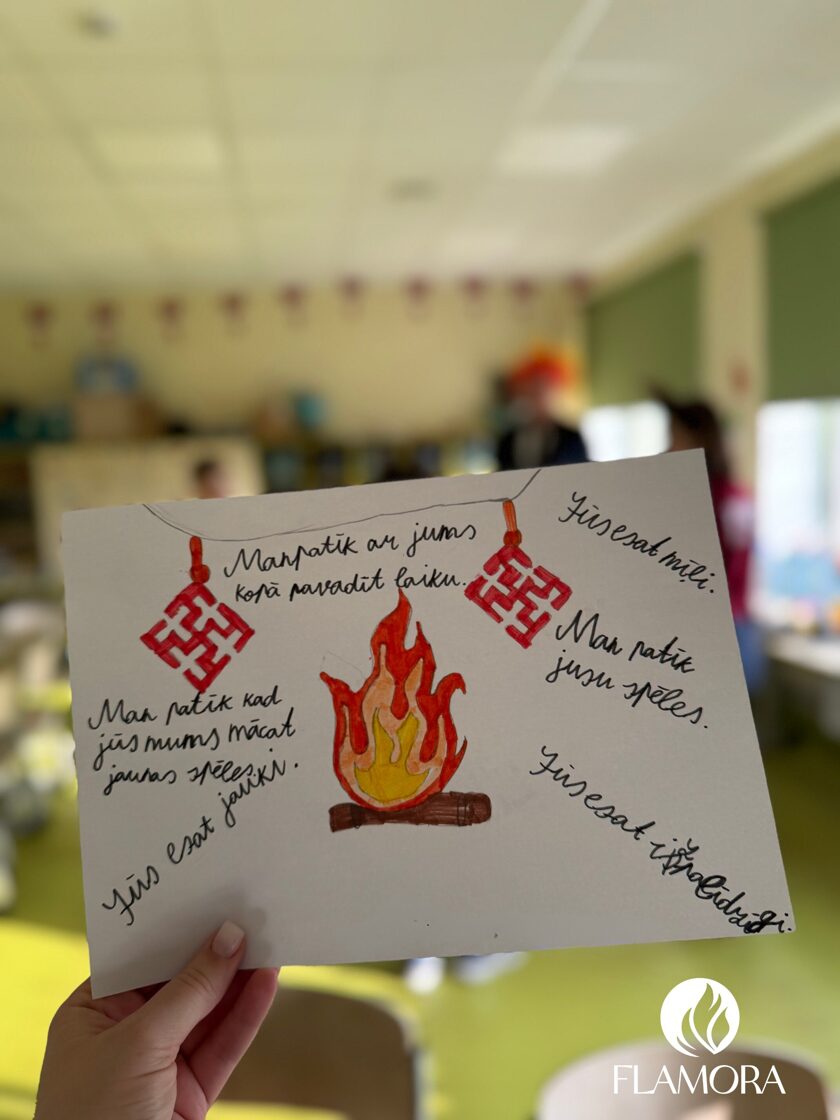 Man patīk ar jums
kopā pavadīt laiku.
Jūs esat mīļi.
Man patīk
jusu spēles.
Man patīk kad
jūs mums mācat
jaunas spēles.
Jūs esat jauki.
Jūs esat izpalīdzīgi.
FLAMORA